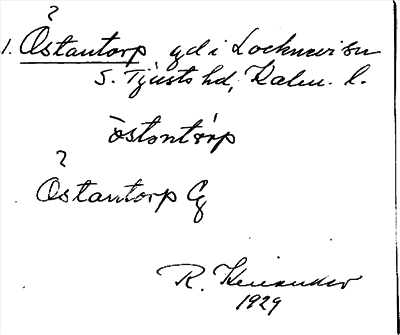 ?
1. Östantorp gd i Locknevi sn
S. Tjusts hd, Kalm. l.
östontòrp
?
Östantorp Cg
R. Kenander
1929